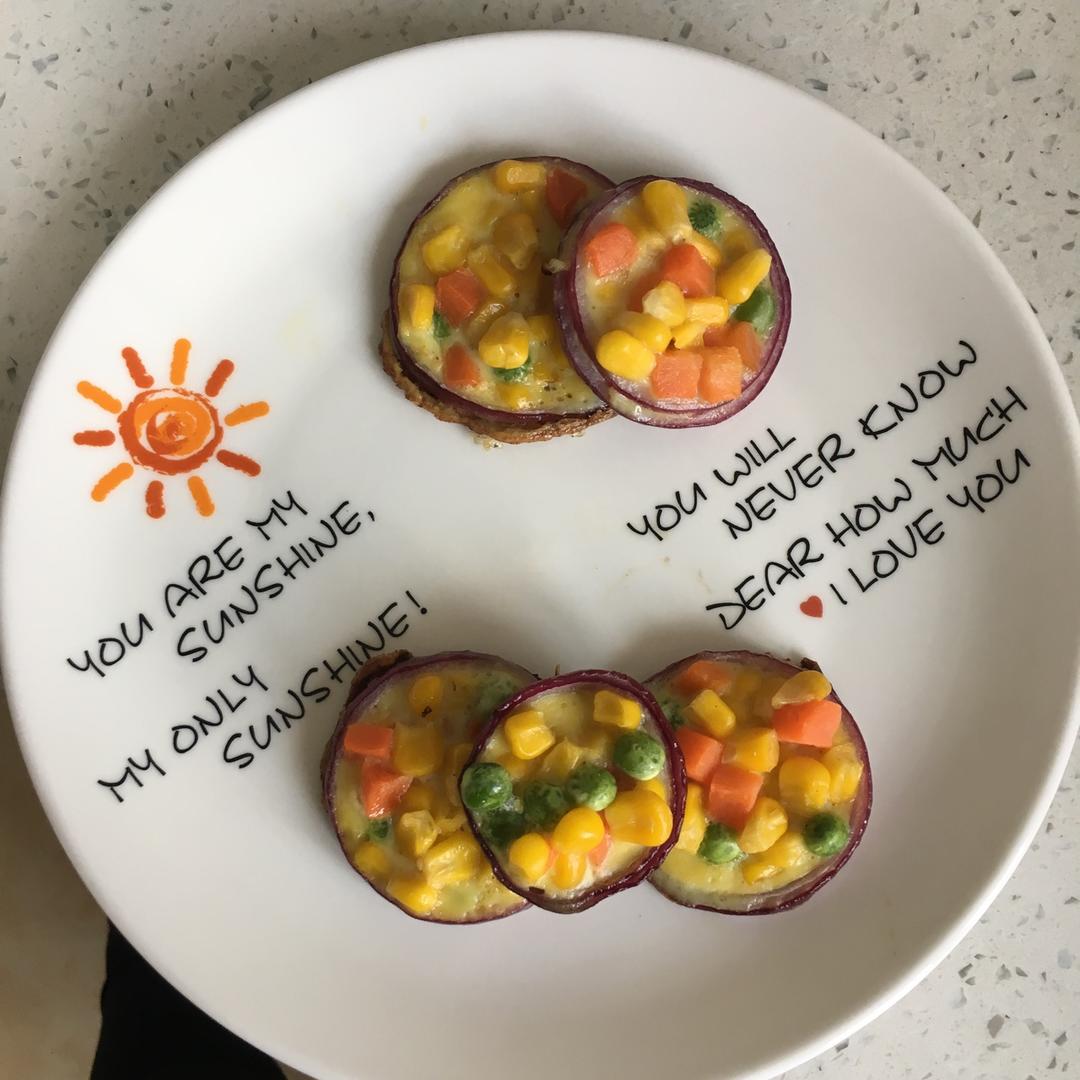 YOU ARE MY
SUNSHINE,
MY ONLY
SUNSHINE!
YOU WILL
NEVER KNOW
DEAR HOW MUCH
I LOVE YOU